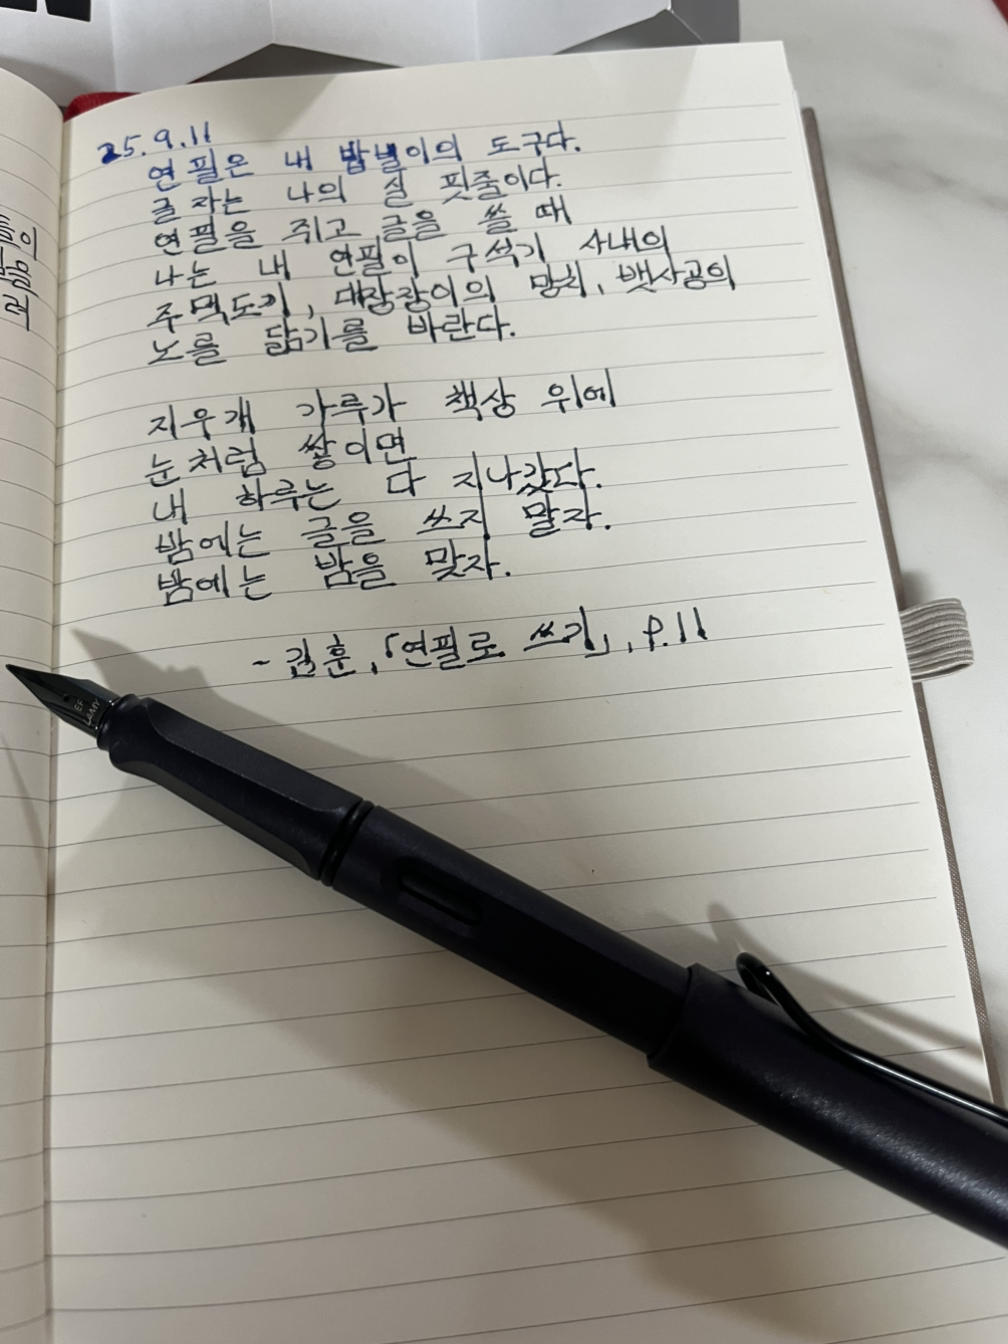 25.9.11
연필은 내 밥벌이의 도구다.
글자는 나의 실 핏줄이다.
연필을 쥐고 글을 쓸 때
나는 내 연필이 구석기 사내의
주먹도끼, 대장장이의 망치, 뱃사공의
노를 닮기를 바란다.
지우개 가루가 책상 위에
눈처럼 쌓이면
내 하루는 다 지나갔다.
밤에는 글을 쓰지 말자.
밤에는 밤을 맞자.
- 김훈, 「연필로 쓰기」, p.11
EF
LAMY